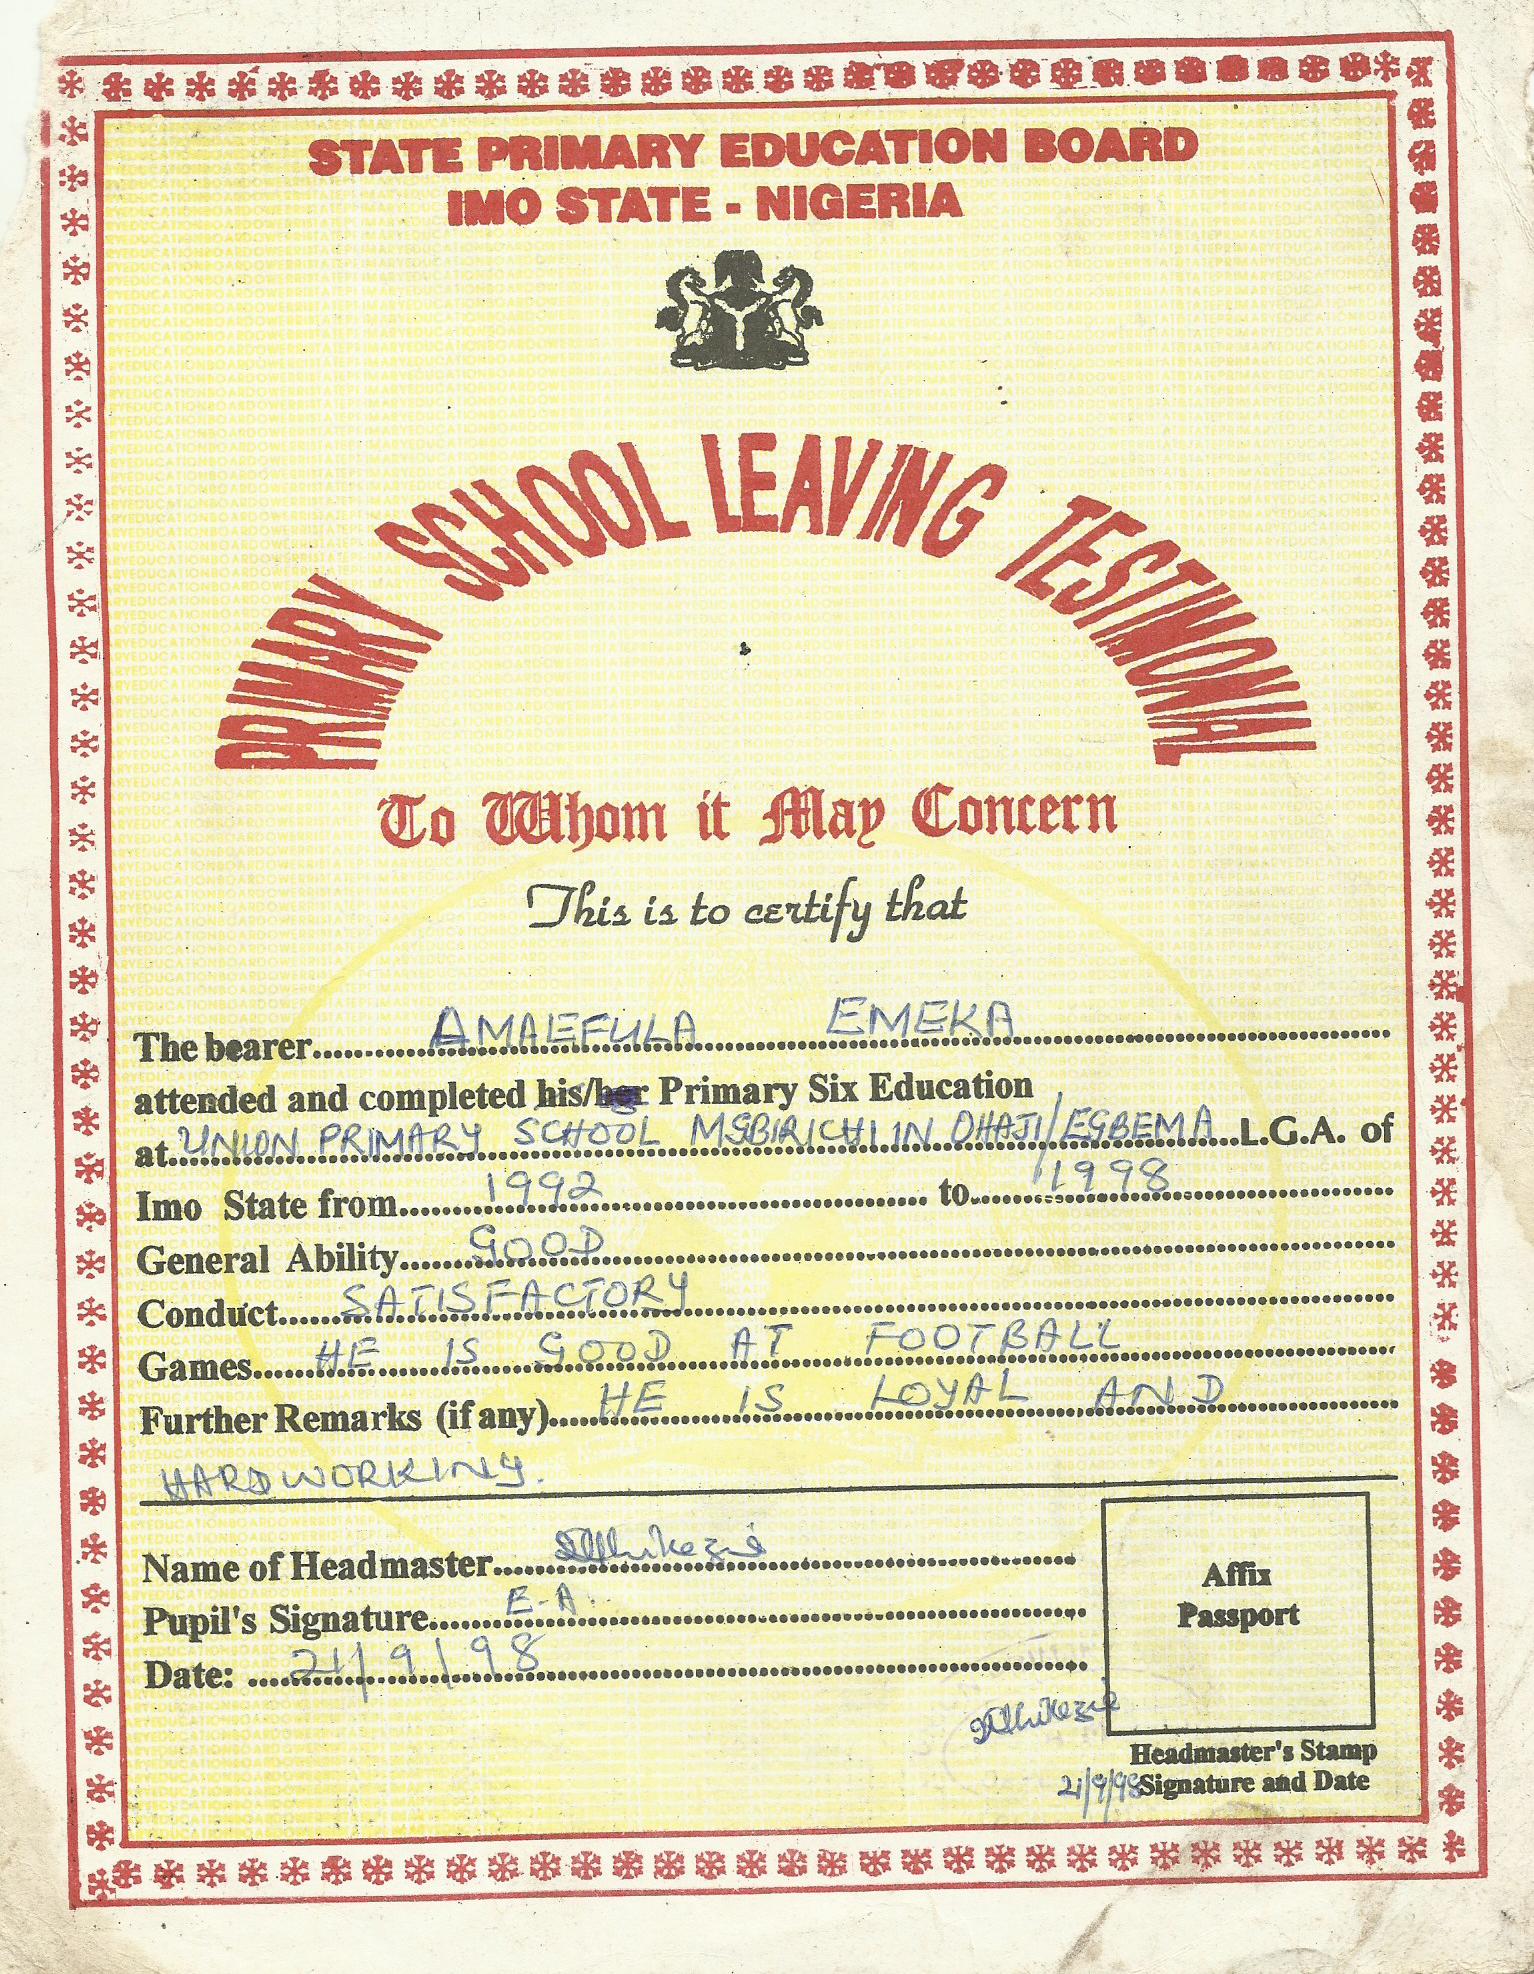 STATE PRIMARY EDUCATION BOARD
IMO STATE - NIGERIA
PRIMARY SCHOOL LEAVING TESTIMONIAL
To Whom it May Concern
This is to certify that
The bearer AMAEFULA EMEKA
attended and completed his/her Primary Six Education
at UNION PRIMARY SCHOOL MGBIRICHI IN OHAJI/EGBEMA L.G.A. of
Imo State from 1992 to 1998
General Ability GOOD
Conduct SATISFACTORY
Games HE IS GOOD AT FOOTBALL
Further Remarks (if any) HE IS LOYAL AND
HARDWORKING.
Name of Headmaster
Pupil's Signature E-A.
Date: 21/9/98
Affix
Passport
Headmaster's Stamp
21/9/98 Signature and Date